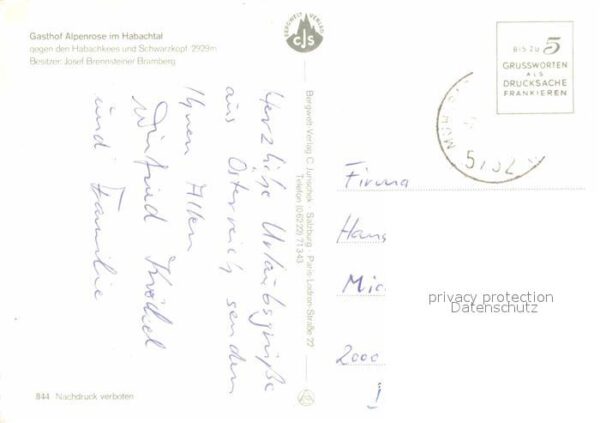 Gasthof Alpenrose im Habachtal
gegen den Habachkees und Schwarzkopf 2929m
Besitzer: Josef Brennsteiner Bramberg
BERGWELT VERLAG
CJS
BIS ZU 5
GRUSSWORTEN
ALS
DRUCKSACHE
FRANKIEREN
5732
Herzliche Urlaubsgrüße
aus Österreich senden
Ihnen Allen
Winfried
und Familie
Bergwelt-Verlag C. Jurischek · Salzburg · Paris-Lodron-Straße 22
Telefon (06222) 71343
Firma
Hans
Mic
2000
privacy protection
Datenschutz
844 Nachdruck verboten